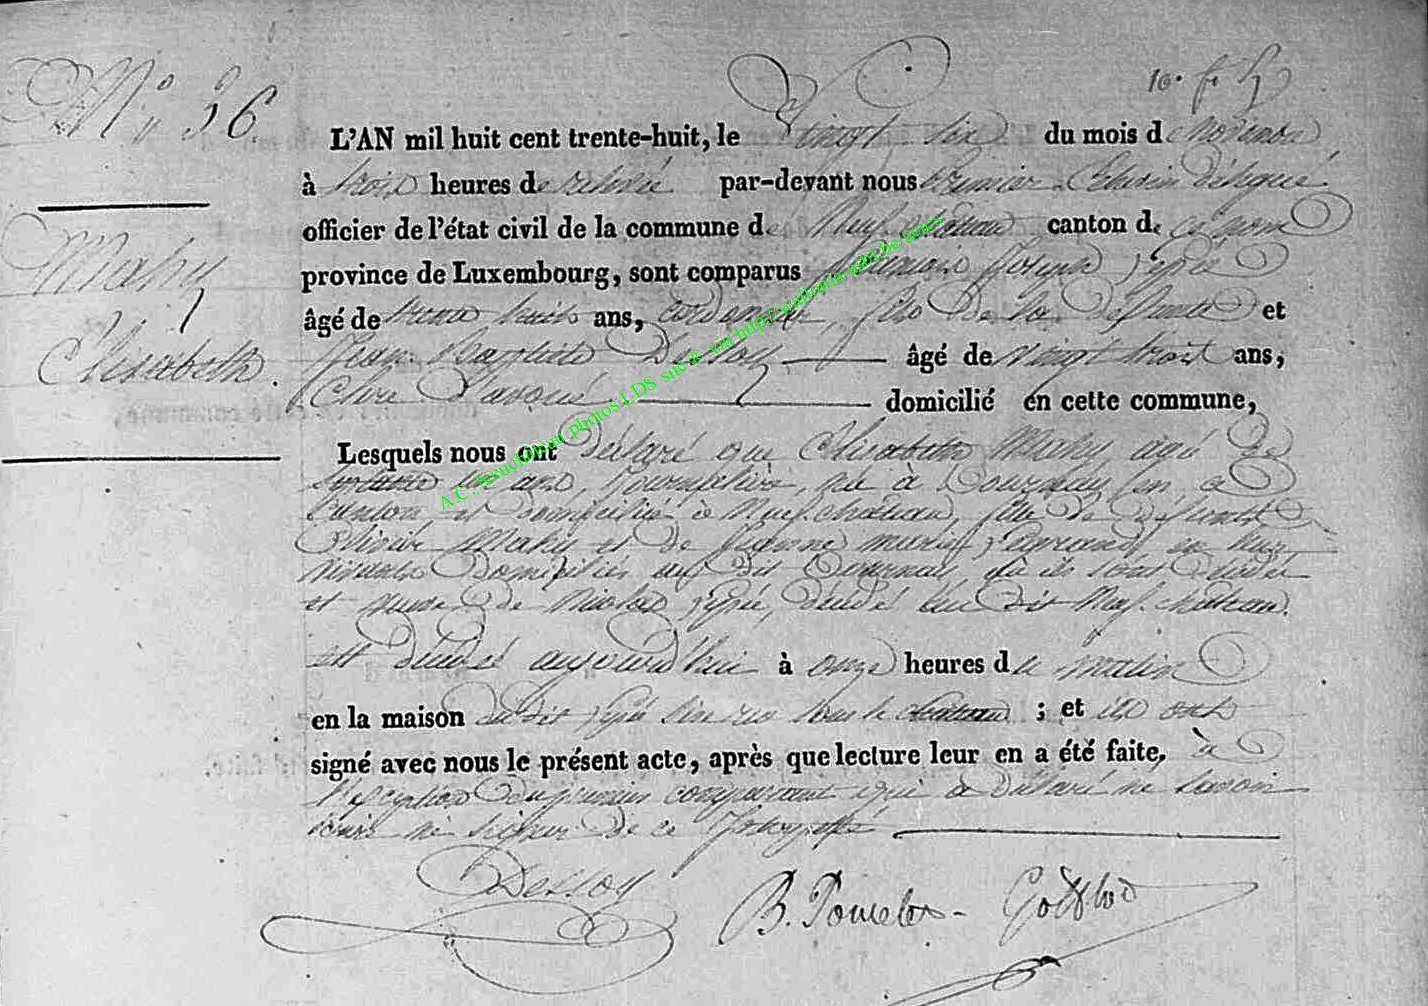 N° 36
Mahy
Elisabeth.
L'AN mil huit cent trente-huit, le Vingt six du mois de novembre
à trois heures de relevée par-devant nous Premier Echevin délégué
officier de l'état civil de la commune de Neufchâteau canton de ce nom
province de Luxembourg, sont comparus Joseph
âgé de trente huit ans, cordonnier, fils de la défunte et
Jean Baptiste Dessoy âgé de vingt trois ans,
Clerc d'avoué domicilié en cette commune,
Lesquels nous ont déclaré que Elisabeth Mahy agée de
ans, née à Tournay en ce
Canton et domiciliée à Neufchateau, fille de défunts
Olivier Mahy et de Jeanne en leur
vivant domiciliés au dit Tournay, où ils sont décédés
et de Nicolas décédé au dit Neufchateau.
est décédée aujourd'hui à onze heures du matin
en la maison du dit sous le chateau ; et ils ont
signé avec nous le présent acte, après que lecture leur en a été faite, à
l'exception du premier comparant qui a déclaré ne savoir
écrire ni signer de ce
Dessoy B. Poncelet
A.C. Neufchâteau photos LDS site de via http://wallonia-asbl.be/actes